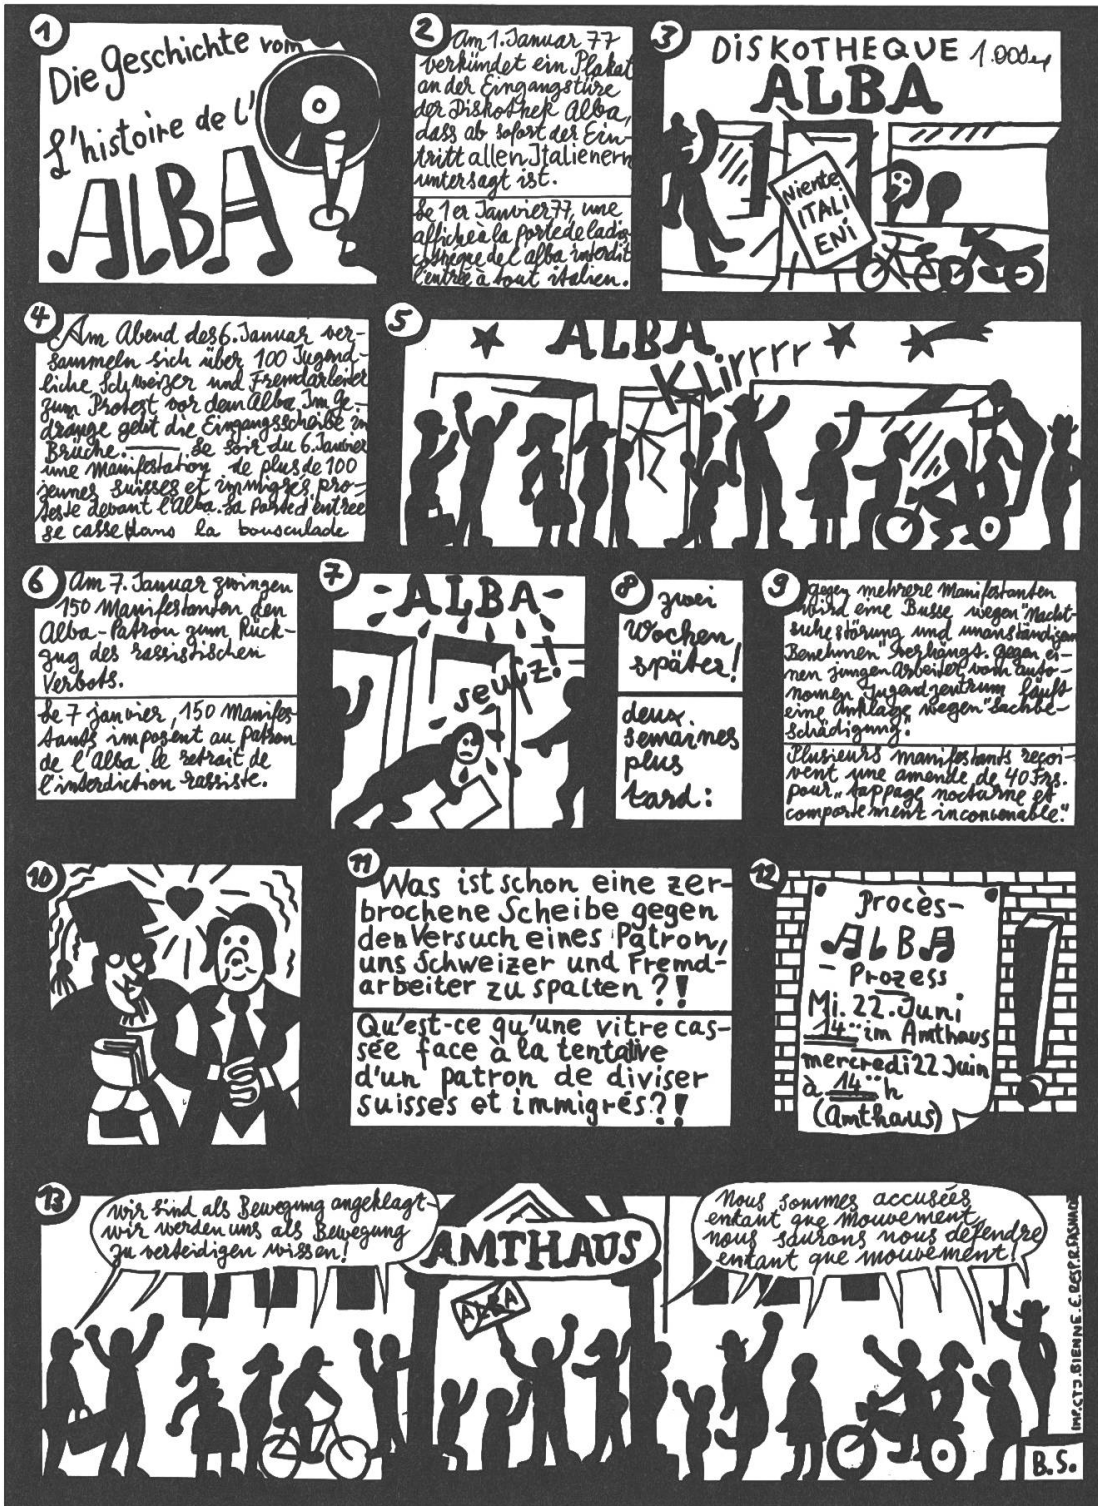 1
Die Geschichte vom
L'histoire de l'
ALBA
2
Am 1. Januar 77
verkündet ein Plakat
an der Eingangstüre
der Diskothek Alba,
dass ab sofort der Ein-
tritt allen Italienern
untersagt ist.
Le 1er Janvier 77, une
affiche à la porte de la dis
cothèque de l'alba interdit
l'entrée à tout italien.
3
DiSKOTHEQUE
ALBA
Niente
ITALI
ENI
4
Am Abend des 6. Januar ver-
sammeln sich über 100 Jugend-
liche, Schweizer und Fremdarbeiter
zum Protest vor dem Alba. Im Ge-
dränge geht die Eingangsscheibe in
Brüche. Le soir du 6. Janvier
une manifestation de plus de 100
jeunes suisses et immigrés pro-
teste devant l'Alba. La porte d'entrée
se casse dans la bousculade
5
ALBA
KLirrrr
6
Am 7. Januar zwingen
150 Manifestanten den
Alba-Patron zum Rück-
zug des rassistischen
Verbots.
Le 7 janvier, 150 Manifes
tants imposent au patron
de l'Alba le retrait de
l'interdiction rassiste.
7
-ALBA-
seufz!
8
zwei
Wochen
später!
deux
semaines
plus
tard:
9
gegen mehrere Manifestanten
wird eine Busse wegen "Nacht-
ruhestörung und unanständigen
Benehmen" verhängt. Gegen ei-
nen jungen Arbeiter vom auto-
nomen Jugendzentrum läuft
eine Anklage wegen "Sachbe-
schädigung".
Plusieurs manifestants reçoi-
vent une amende de 40 Frs.
pour "tappage nocturne et
comportement inconvenable."
10
11
Was ist schon eine zer-
brochene Scheibe gegen
den Versuch eines Patron,
uns Schweizer und Fremd-
arbeiter zu spalten?!
Qu'est-ce qu'une vitre cas-
sée face à la tentative
d'un patron de diviser
suisses et immigrés?!
12
Procès-
ALBA
- Prozess
Mi. 22. Juni
14°° im Amthaus
mercredi 22 Juin
à 14°° h
(Amthaus)
!
13
wir sind als Bewegung angeklagt-
wir werden uns als Bewegung
zu verteidigen wissen!
AMTHAUS
ALBA
Nous sommes accusées
entant que mouvement,
nous saurons nous défendre
entant que mouvement!
IMP. CTJ. BIENNE. E. RESP. R.
B.S.